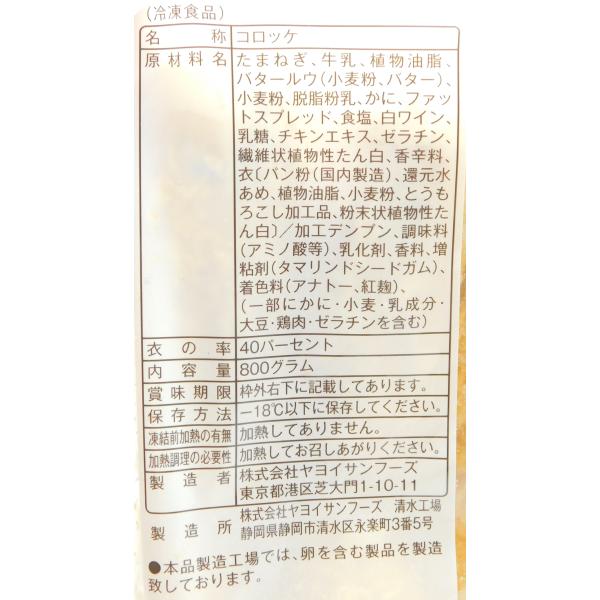 (冷凍食品)
名称 コロッケ
原材料名 たまねぎ、牛乳、植物油脂、
バタールウ(小麦粉、バター)、
小麦粉、脱脂粉乳、かに、ファッ
トスプレッド、食塩、白ワイン、
乳糖、チキンエキス、ゼラチン、
繊維状植物性たん白、香辛料、
衣〔パン粉(国内製造)、還元水
あめ、植物油脂、小麦粉、とうも
ろこし加工品、粉末状植物性た
ん白〕/加工デンプン、調味料
(アミノ酸等)、乳化剤、香料、増
粘剤(タマリンドシードガム)、
着色料(アナトー、紅麹)、
(一部にかに・小麦・乳成分・
大豆・鶏肉・ゼラチンを含む)
衣の率 40パーセント
内容量 800グラム
賞味期限 枠外右下に記載してあります。
保存方法 -18℃以下に保存してください。
凍結前加熱の有無 加熱してありません。
加熱調理の必要性 加熱してお召しあがりください。
製造者 株式会社ヤヨイサンフーズ
東京都港区芝大門1-10-11
製造所 株式会社ヤヨイサンフーズ 清水工場
静岡県静岡市清水区永楽町3番5号
●本品製造工場では、卵を含む製品を製造
致しております。